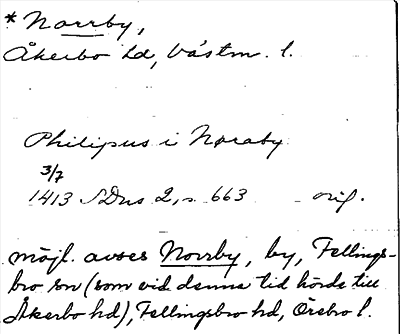 * Norrby,
Åkerbo hd, Västm. l.
Philipus i Noraby
3/7
1413 SDns 2, s. 663 orig.
möjl. avses Norrby, by, Fellings-
bro sn (som vid denna tid hörde till
Åkerbo hd), Fellingsbro hd, Örebro l.